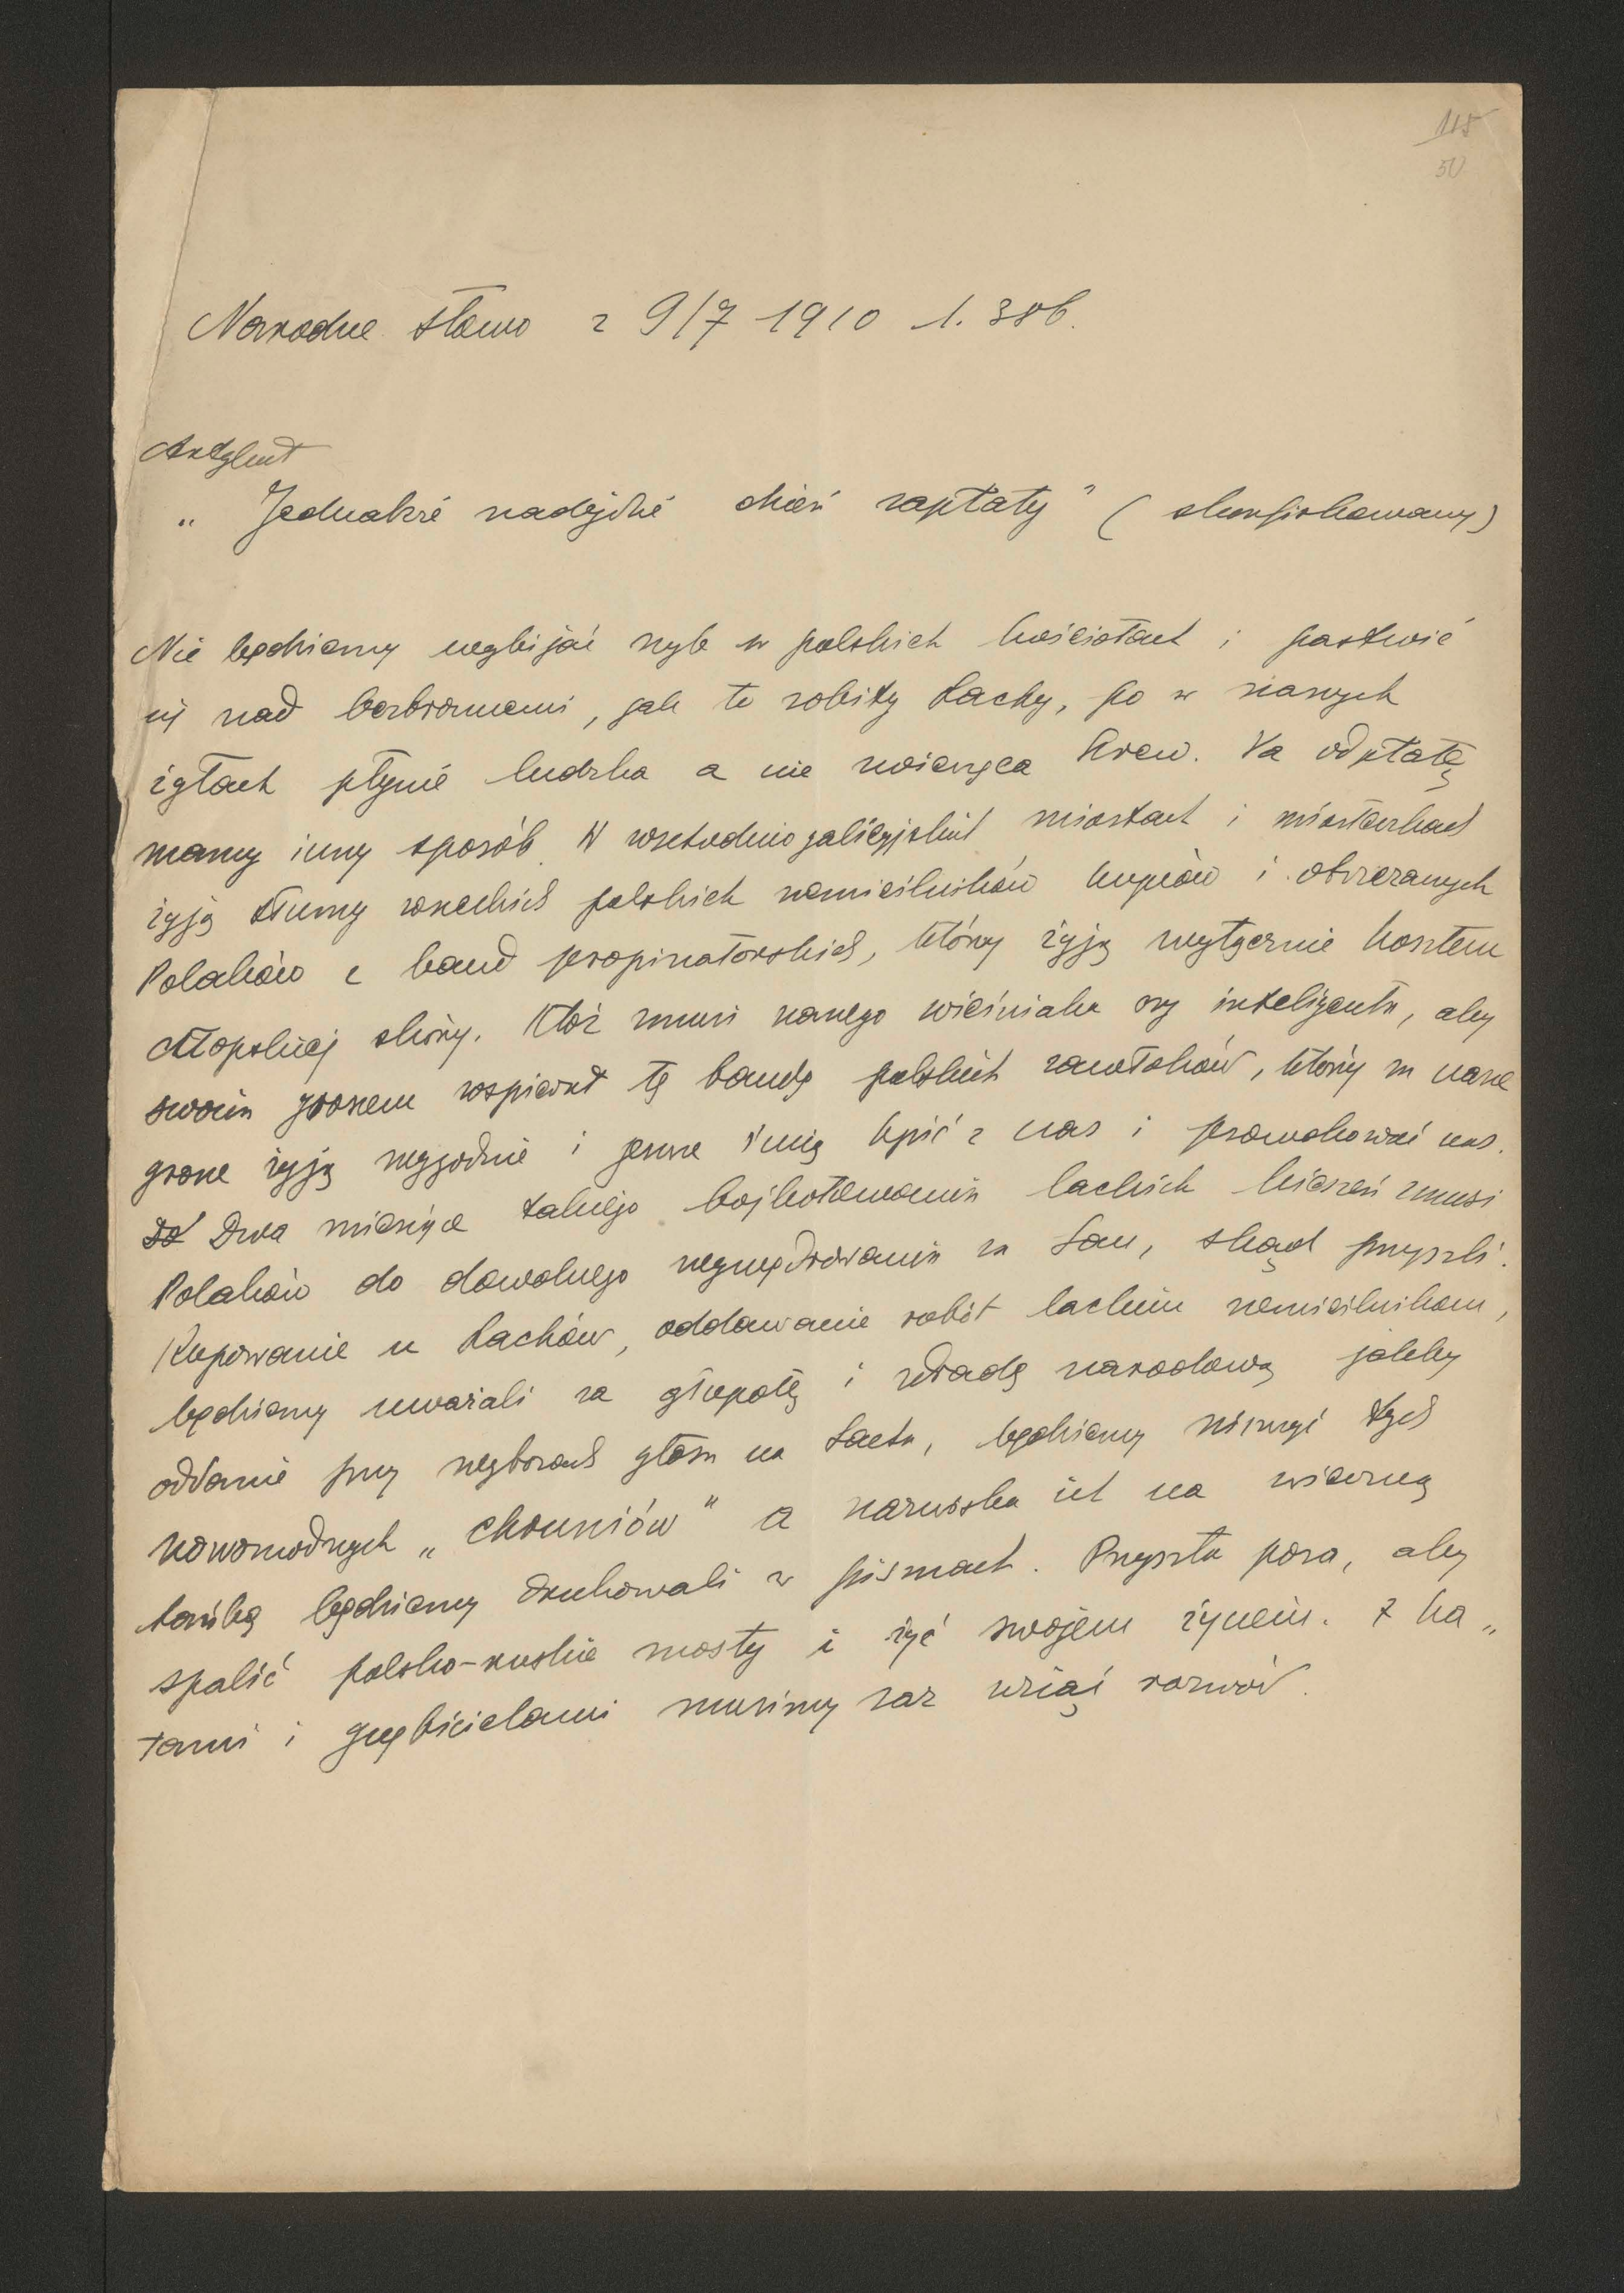 115
50
Narodne Słowo z 9/7 1910 l. 386.
Artykuł
„Jednakże nadejdzie dzień zapłaty" (skonfiskowany)
Nie będziemy wybijać szyb w polskich kościołach i pastwić
się nad bezbronnemi, jak to robiły Lachy, bo w naszych
żyłach płynie ludzka a nie zwierzęca krew. Na odpłatę
mamy inny sposób. W wschodniogalicyjskich miastach i miasteczkach
żyją tłumy wszelkich polskich rzemieślników kupców i obrzezanych
Polaków z band propinatorskich, którzy żyją wyłącznie kosztem
chłopskiej skóry. Któż zmusi naszego wieśniaka czy inteligenta, aby
swoim groszem wspierał tę bandę polskich zawłoków, którzy za nasze
grosze żyją wygodnie i jeszcze śmią kpić z nas i prowokować nas.
Dwa miesiące takiego bojkotowania lackich kieszeń zmusi
Polaków do dowolnego wywędrowania za San, skąd przyszli.
Kupowanie u Lachów, oddawanie robót lackim rzemieślnikom,
będziemy uważali za głupotę i zdradę narodową jakby
oddanie przy wyborach głosu na Lacha, będziemy niszczyć tych
nowomodnych „chruniów" a nazwiska ich na wieczną
hańbę będziemy drukowali w pismach. Przyszła pora, aby
spalić polsko-ruskie mosty i żyć swojem życiem. Z ka„
tami i gnębicielami musimy raz wziąć rozwód.